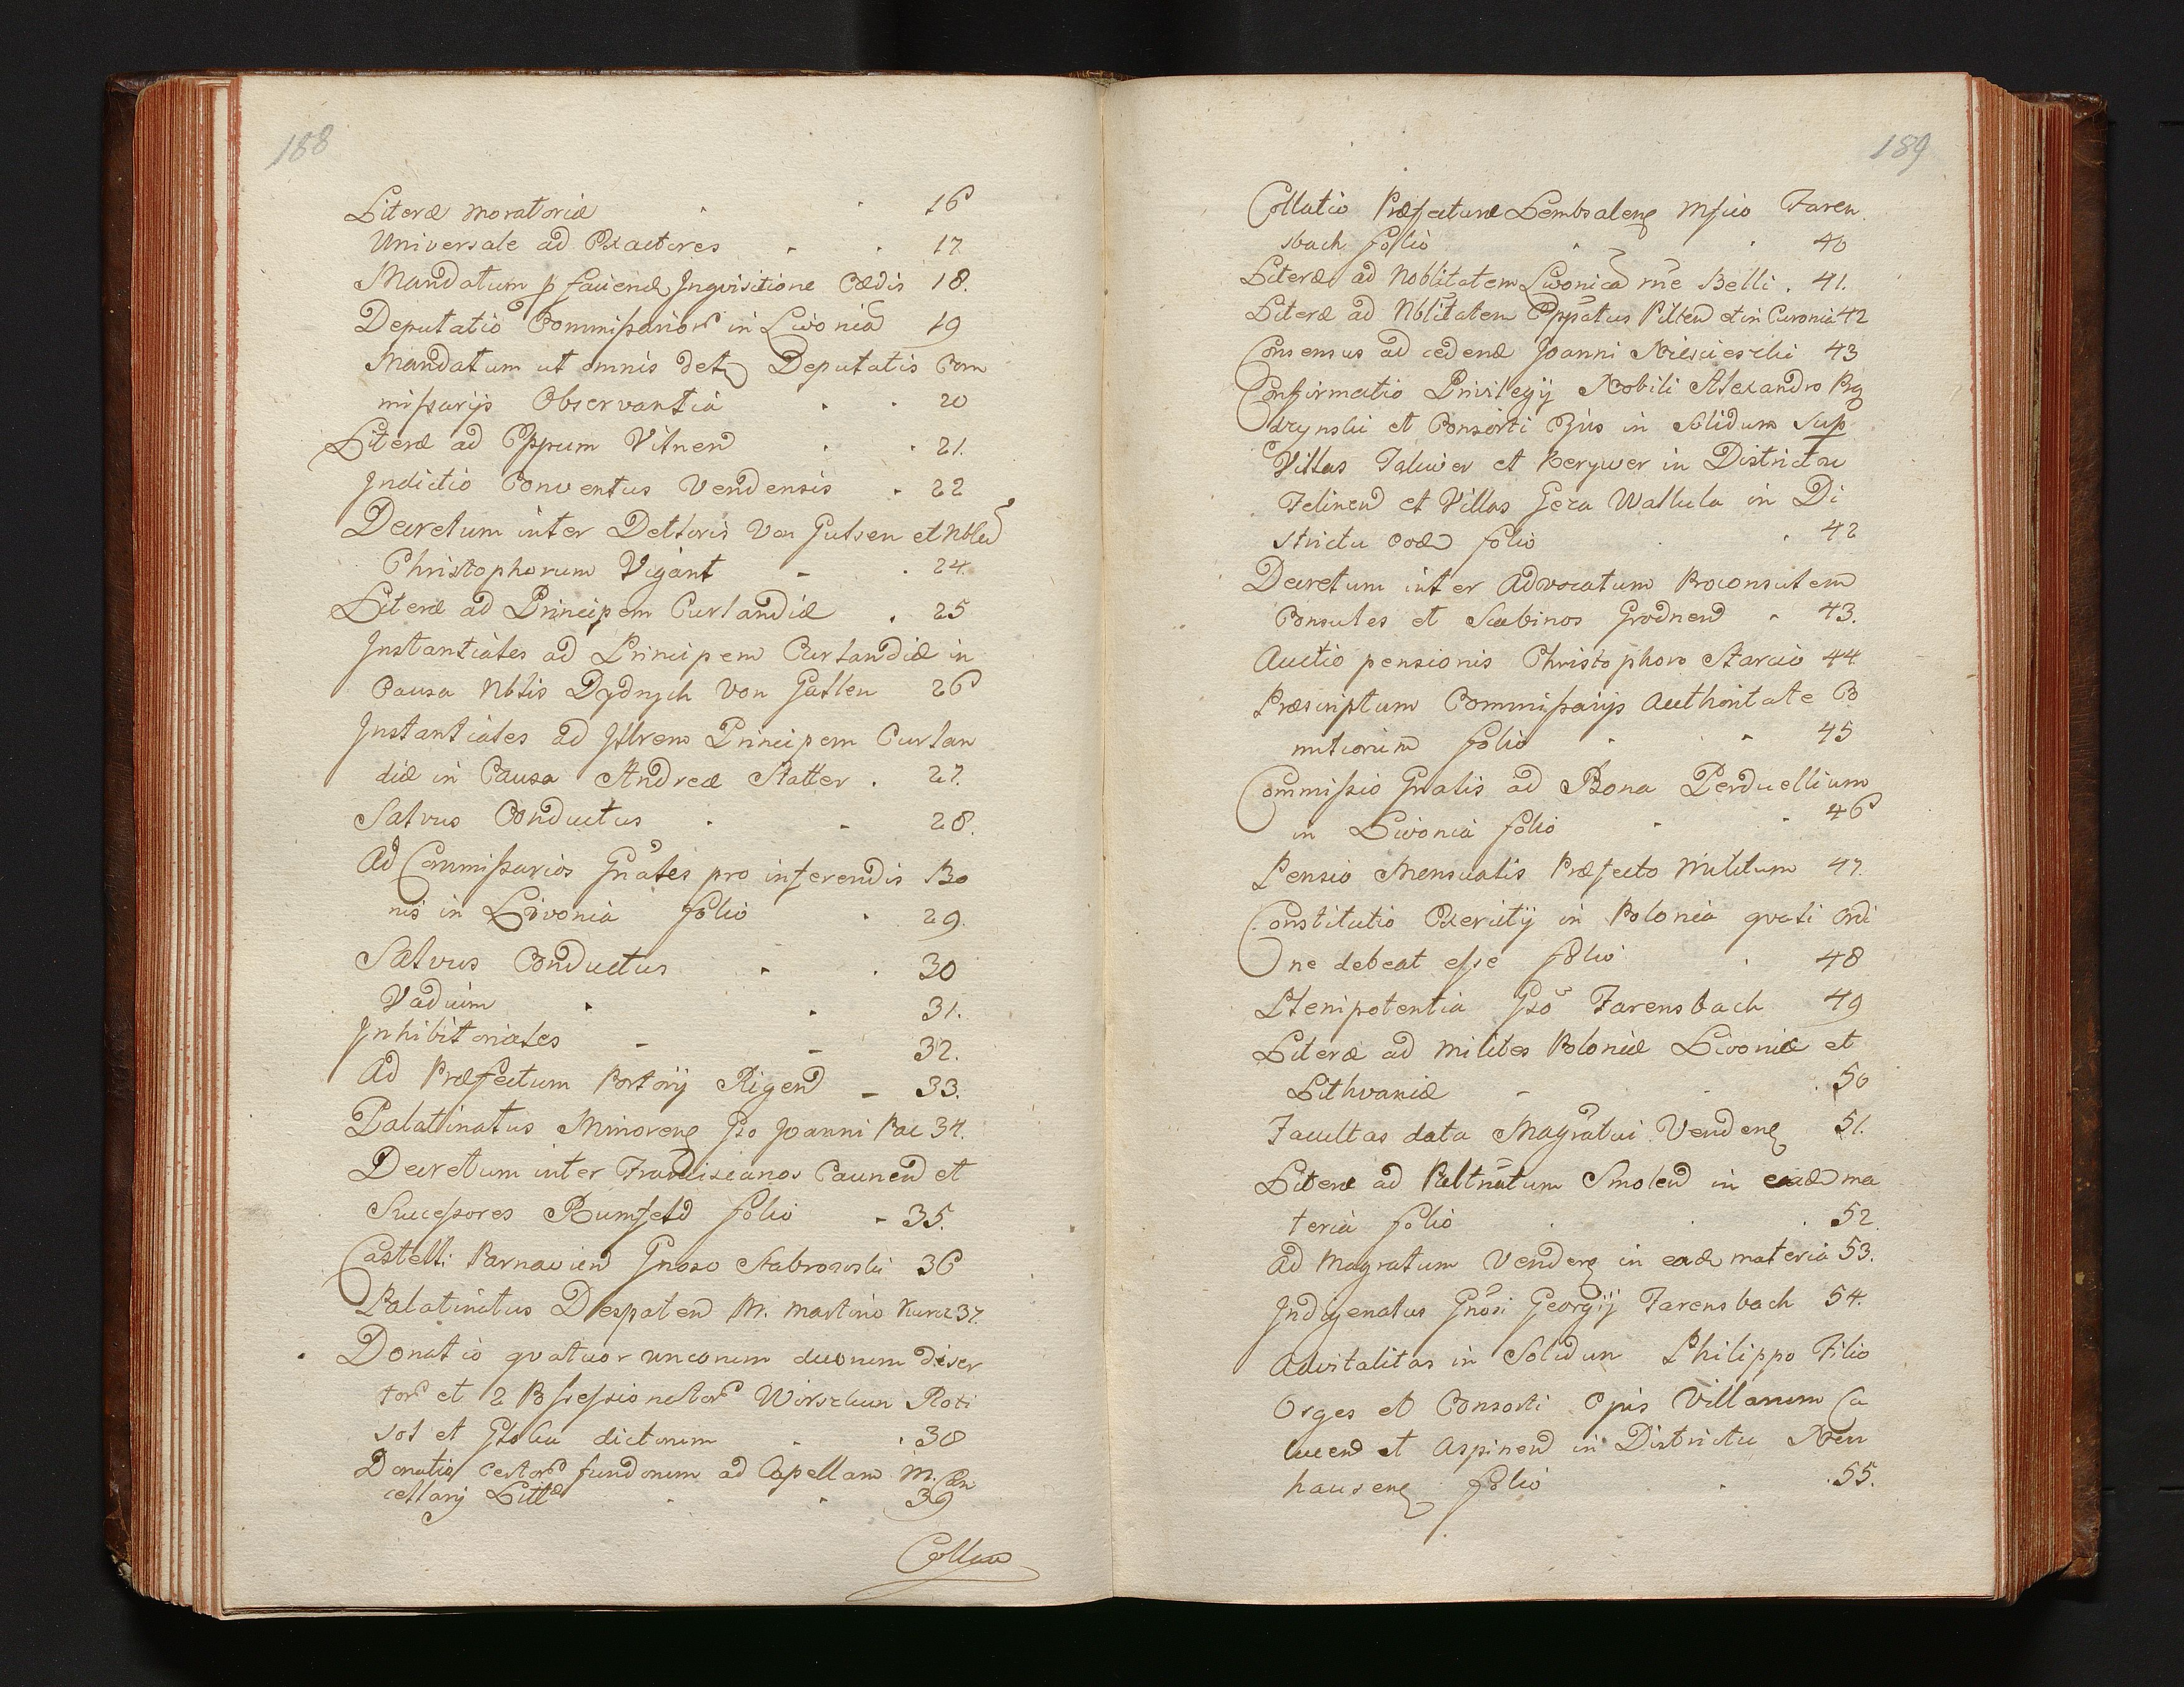 188
Literæ moratoriæ 16
Universale ad Exactores 17.
Mandatum p faciend Inqvisitione Cædis 18.
Deputatio Commissarior in Livonia 19
Mandatum ut omnis det Deputatis Com
missarijs Observantia 20
Literæ ad Eppum Vilnen 21.
Indictio Conventus Vendensis 22
Decretum inter Detloris Von Gutsen et Nblem
Christophorum Vigant 24.
Literæ ad Principem Curlandiæ 25
Instantiales ad Principem Curlandiæ in
Causa Nblis Dydrych Von Gallen 26
Instantiales ad Illrem Principem Curlan
diæ in Causa Andreæ Statter 27.
Salvus Conductus 28.
Ad Commissarios Gnales pro inferendis Bo
nis in Livonia folio 29.
Salvus Conductus 30
Vadium 31.
Inhibitoriales 32.
Ad Præfectum Portorij Rigen 33.
Palatinatus Minoren Gso Joanni Pac 34.
Decretum inter Franciscanos Caunen et
Successores Rumfeld folio 35.
Castell: Parnavien Gnoso Stabrowski 36
Palatinatus Derpaten M. Martino Kurcz 37.
Donatio qvatuor unconum duorum diser
tor et 2 Possessionator Worszlun Roti
sol et Gzolia dictorum 38
Donatio certor fundorum ad Capellam M. Can
cellarij Litt 39
Collao
189
Collatio Præfecturæ Lembsalen Mfico Faren
sbach folio 40
Literæ ad Nobilitatem Livonica rne Belli 41.
Literæ ad Nblitatem Eppatus Pilten et in Curonia 42
Consensus ad cedend Joanni Niesciesz 43
Confirmatio Privilegij Nobili Alexandro
et Consorti Ejus in Solidum Sup
Villas Taluier et Kerywer in Districtu
Felinen et Villas Geza Wallula in Di
strictu eod folio 42
Decretum inter Advocatum Proconsulem
Consules et Scabinos Grodnen 43.
Auctio pensionis Christophoro Starcio 44
Præscriptum Commissarijs Authoritate Co
mitiorum folio 45
Commissio Gnalis ad Bona Perduellium
in Livonia folio 46
Pensio Mensualis Præfecto Militum 47.
Constitutio Exercitij in Polonia qvali Ordi
ne debeat esse folio 48
Plenipotentia Gso Farensbach 49
Literæ ad Milites Poloniæ Livoniæ et
Lithvaniæ 50
Facultas data Magratui Venden 51.
Literæ ad Paltnatum Smolen in ead ma
teria folio 52.
Ad Magratum Venden in ead materia 53.
Indigenatus Gnosi Georgij Farensbach 54.
Advitalitas in Solidum Philippo Filio
Orges et Consorti Ejus Villarum Ca
lucen et Aspinen in Districtu Neu
hausen folio 55.